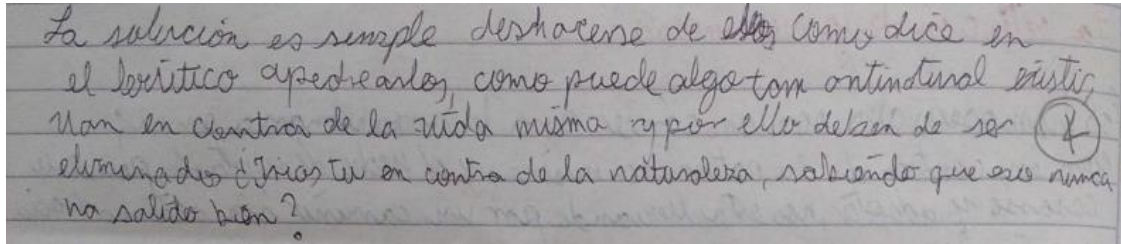 La solución es simple deshacerse de ellos como dice en
el levitico apedrearlos, como puede algo tan antinatural existir,
van en contra de la vida misma y por ello deben de ser
eliminados ¿Irias tu en contra de la naturaleza, sabiendo que eso nunca
ha salido bien?